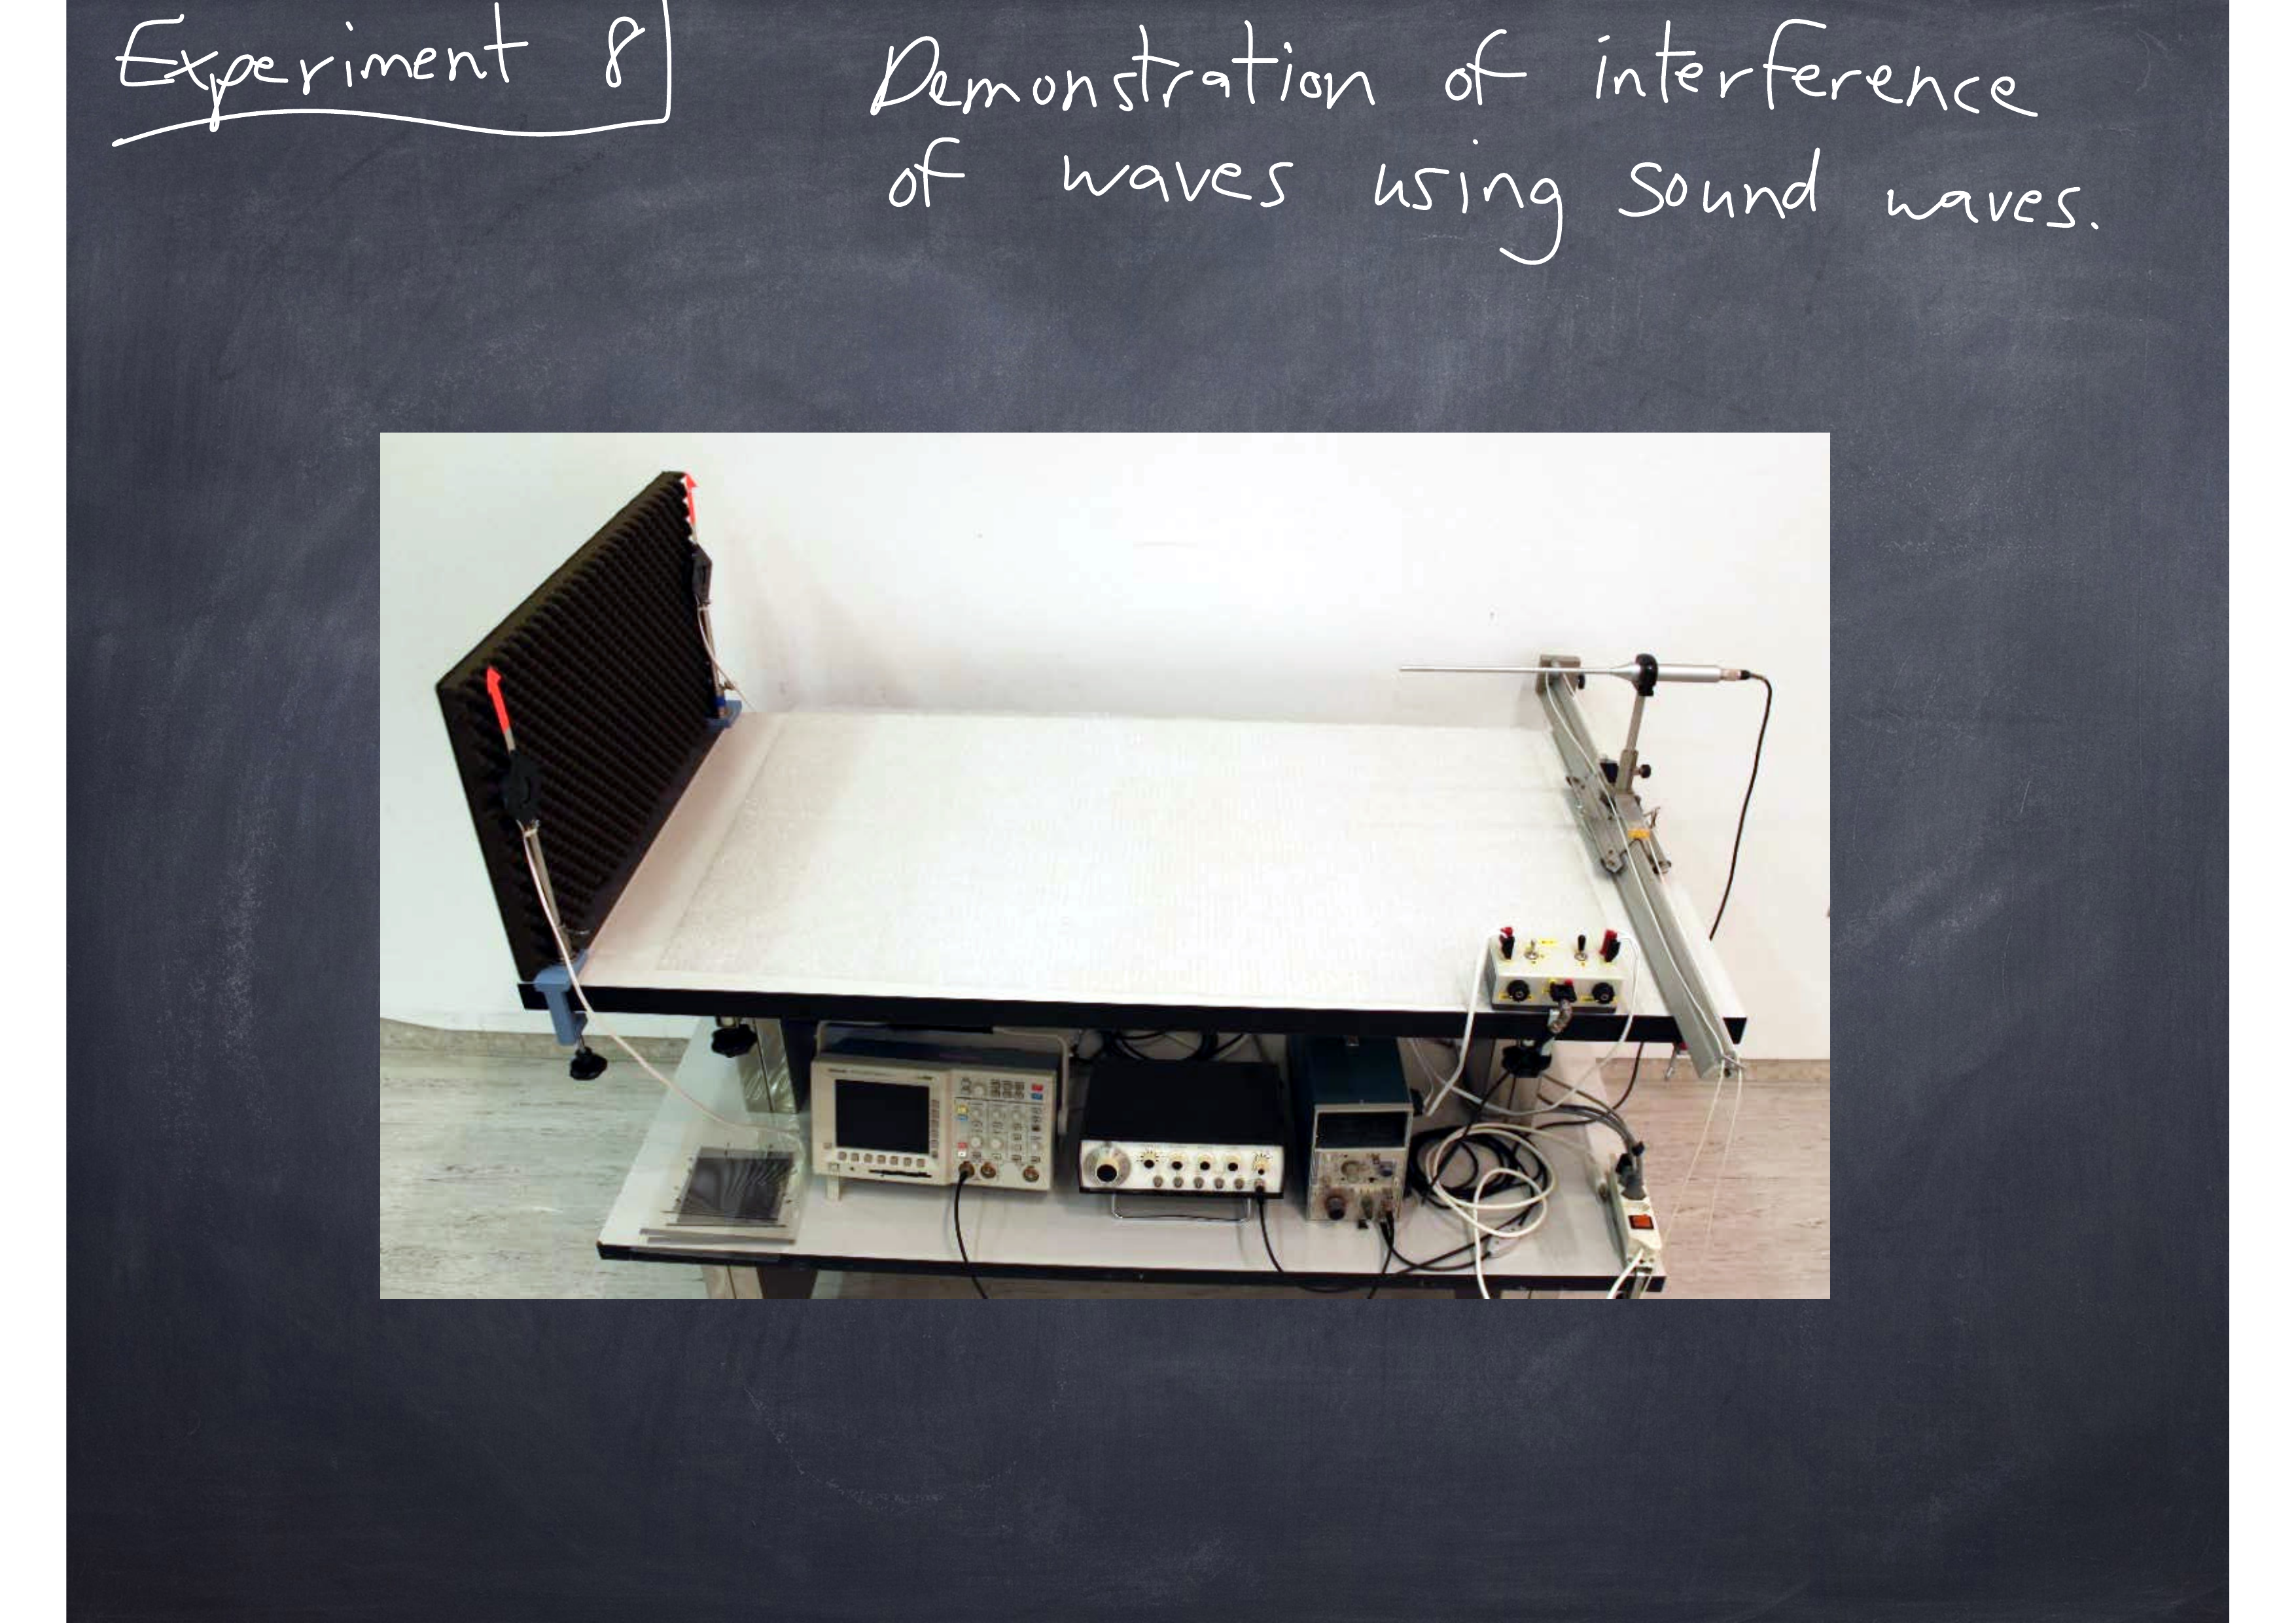 Experiment 8
Demonstration of interference
of waves using sound waves.